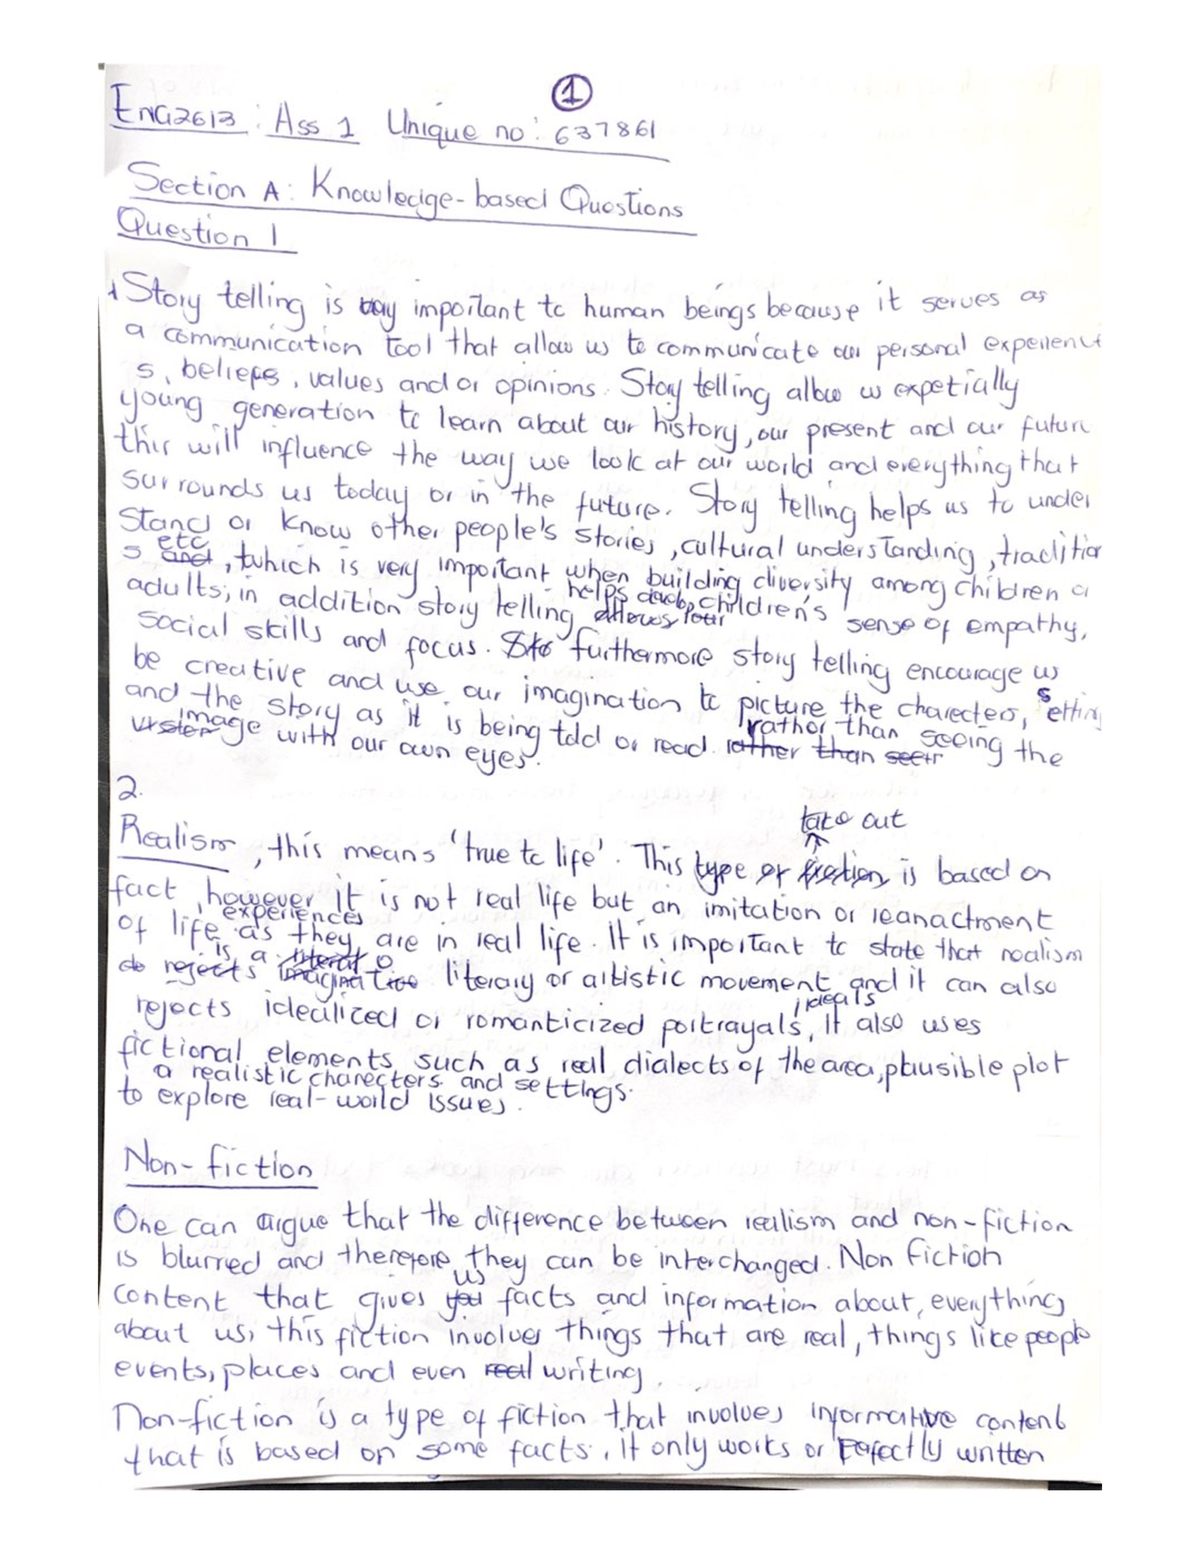 1
ENG2613 : Ass 1 Unique no: 637861
Section A: Knowledge-based Questions
Question 1
1 Story telling is important to human beings because it serves as
a communication tool that allow us to communicate our personal experience
s, beliefs, values and or opinions. Story telling allow us expetially
young generation to learn about our history, our present and our future
this will influence the way we look at our world and everything that
surrounds us today or in the future. Story telling helps us to under
stand or know other people's stories, cultural understanding, tradition
s and etc, which is very important when building diversity among children o
adults; in addition story telling helps children's sense of empathy,
social skills and focus. furthermore story telling encourage us
be creative and use our imagination to picture the charecters, setting
and the story as it is being told or read rather than seeing the
image with our own eyes.
2.
take out
Realism, this means 'true to life'. This type or fiction is based on
fact, however it is not real life but an imitation or reanactment
of life experiences as they are in real life. It is important to state that realism
is a literary or artistic movement and it can also
rejects idealized or romanticized portrayals, ideals It also uses
fictional elements such as real dialects of the area, plausible plot
a realistic charecters and settings.
to explore real-world issues.
Non-fiction
One can argue that the difference between realism and non-fiction
is blurred and therefore they can be interchanged. Non fiction
content that gives us facts and information about, everything
about us, this fiction involves things that are real, things like people
events, places and even real writing.
Non-fiction is a type of fiction that involves informative content
that is based on some facts, it only works or perfectly written